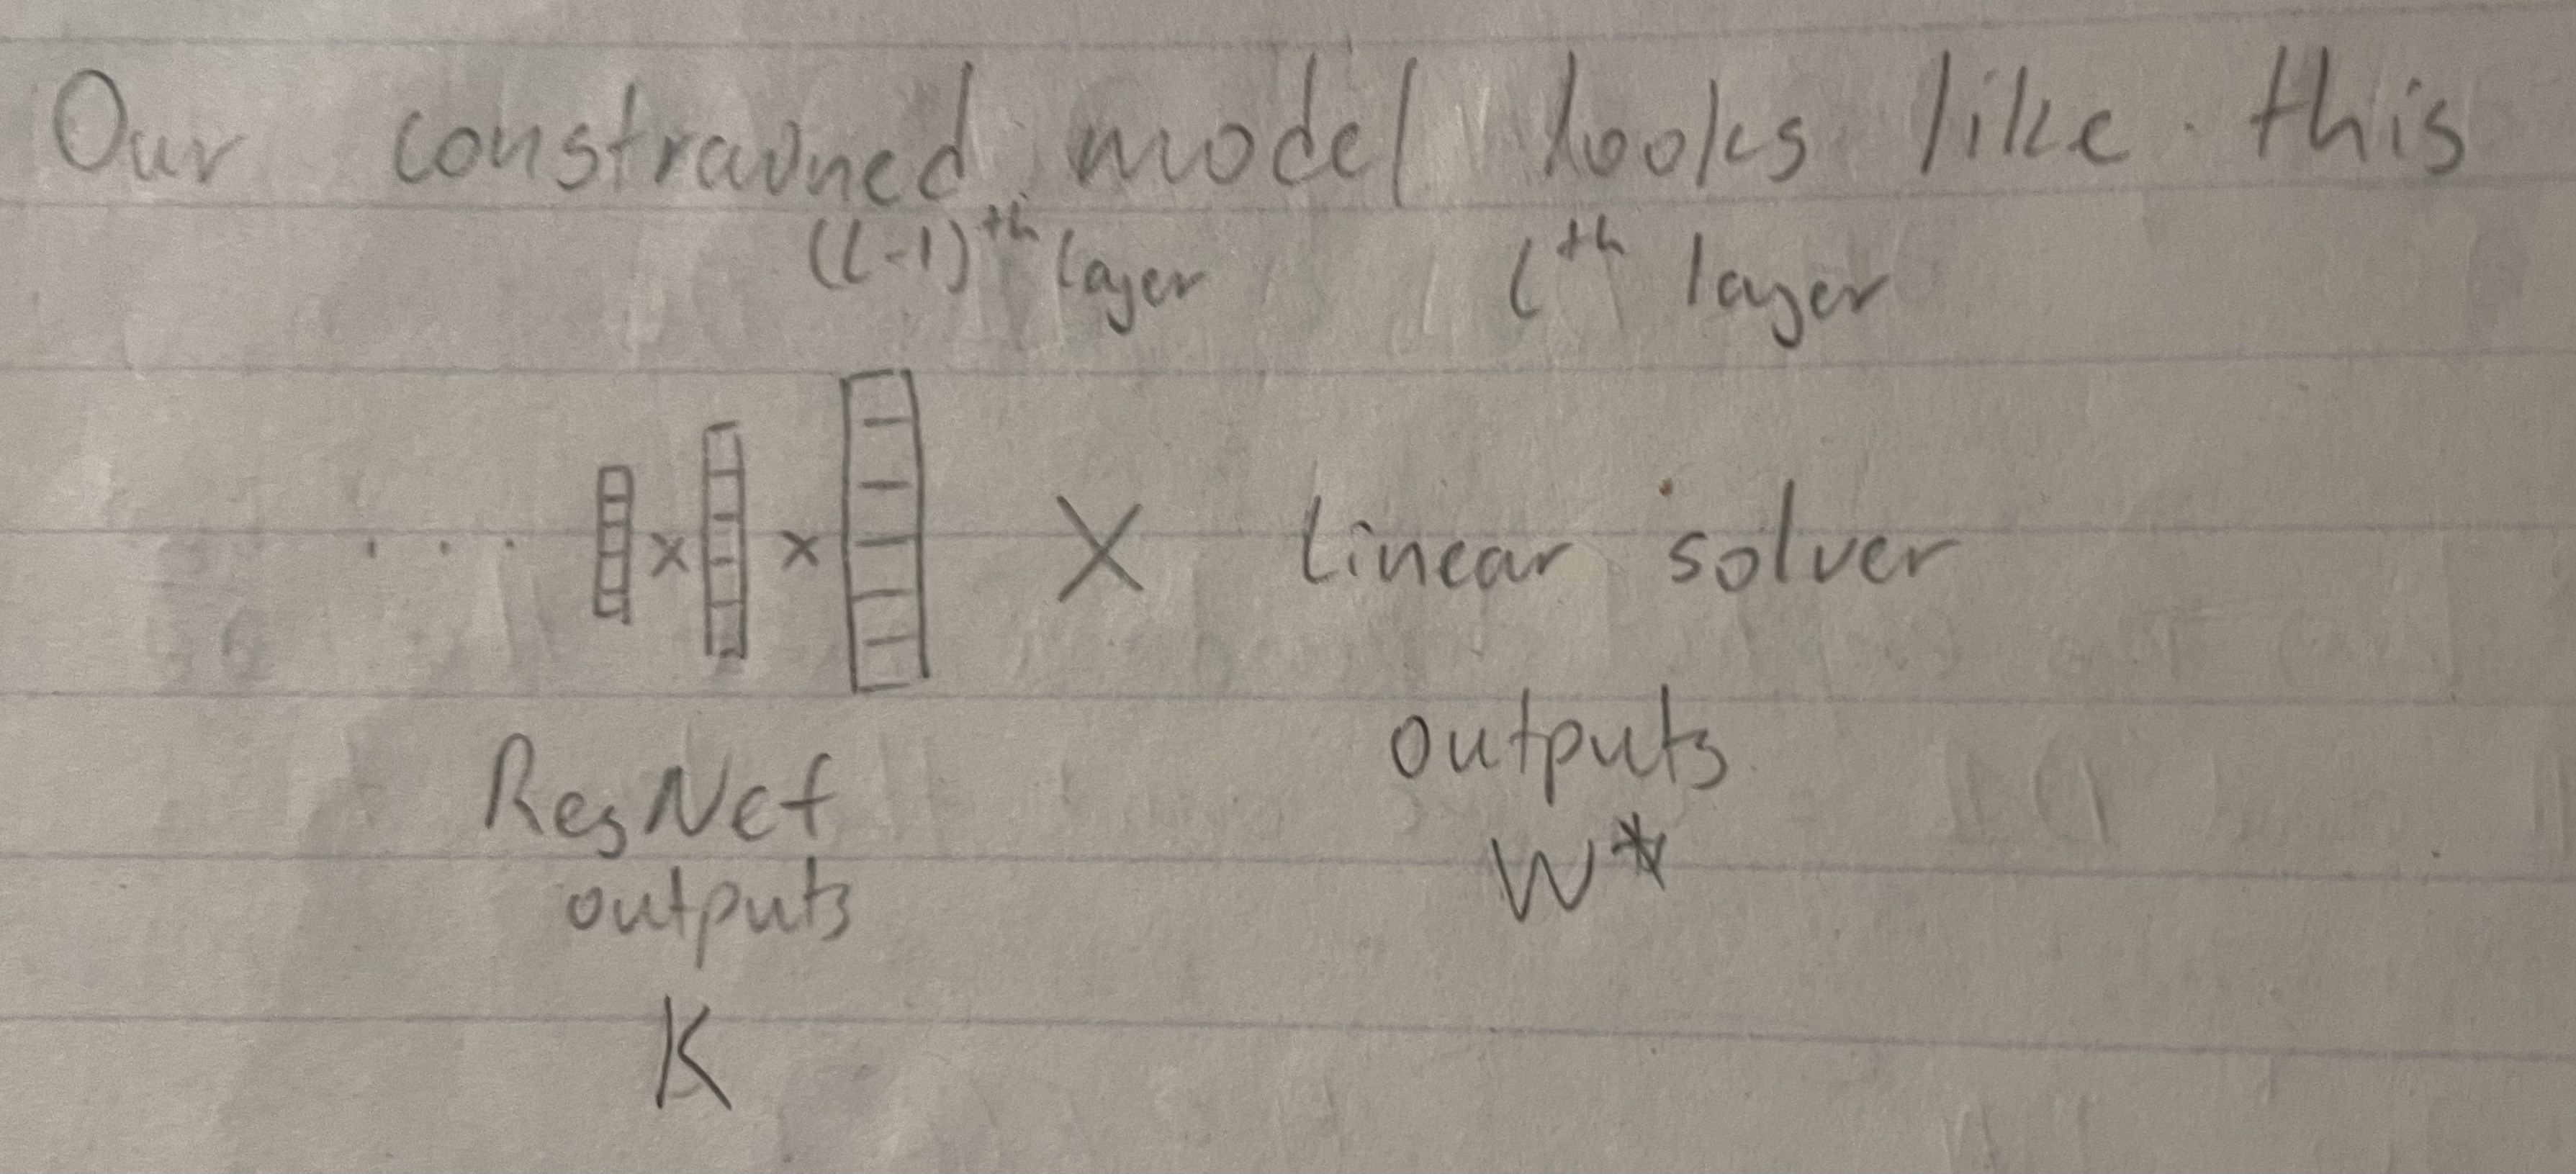 Our constrained model looks like this
(l-1)^th layer l^th layer
. . . x x X linear solver
ResNet outputs
outputs W*
K